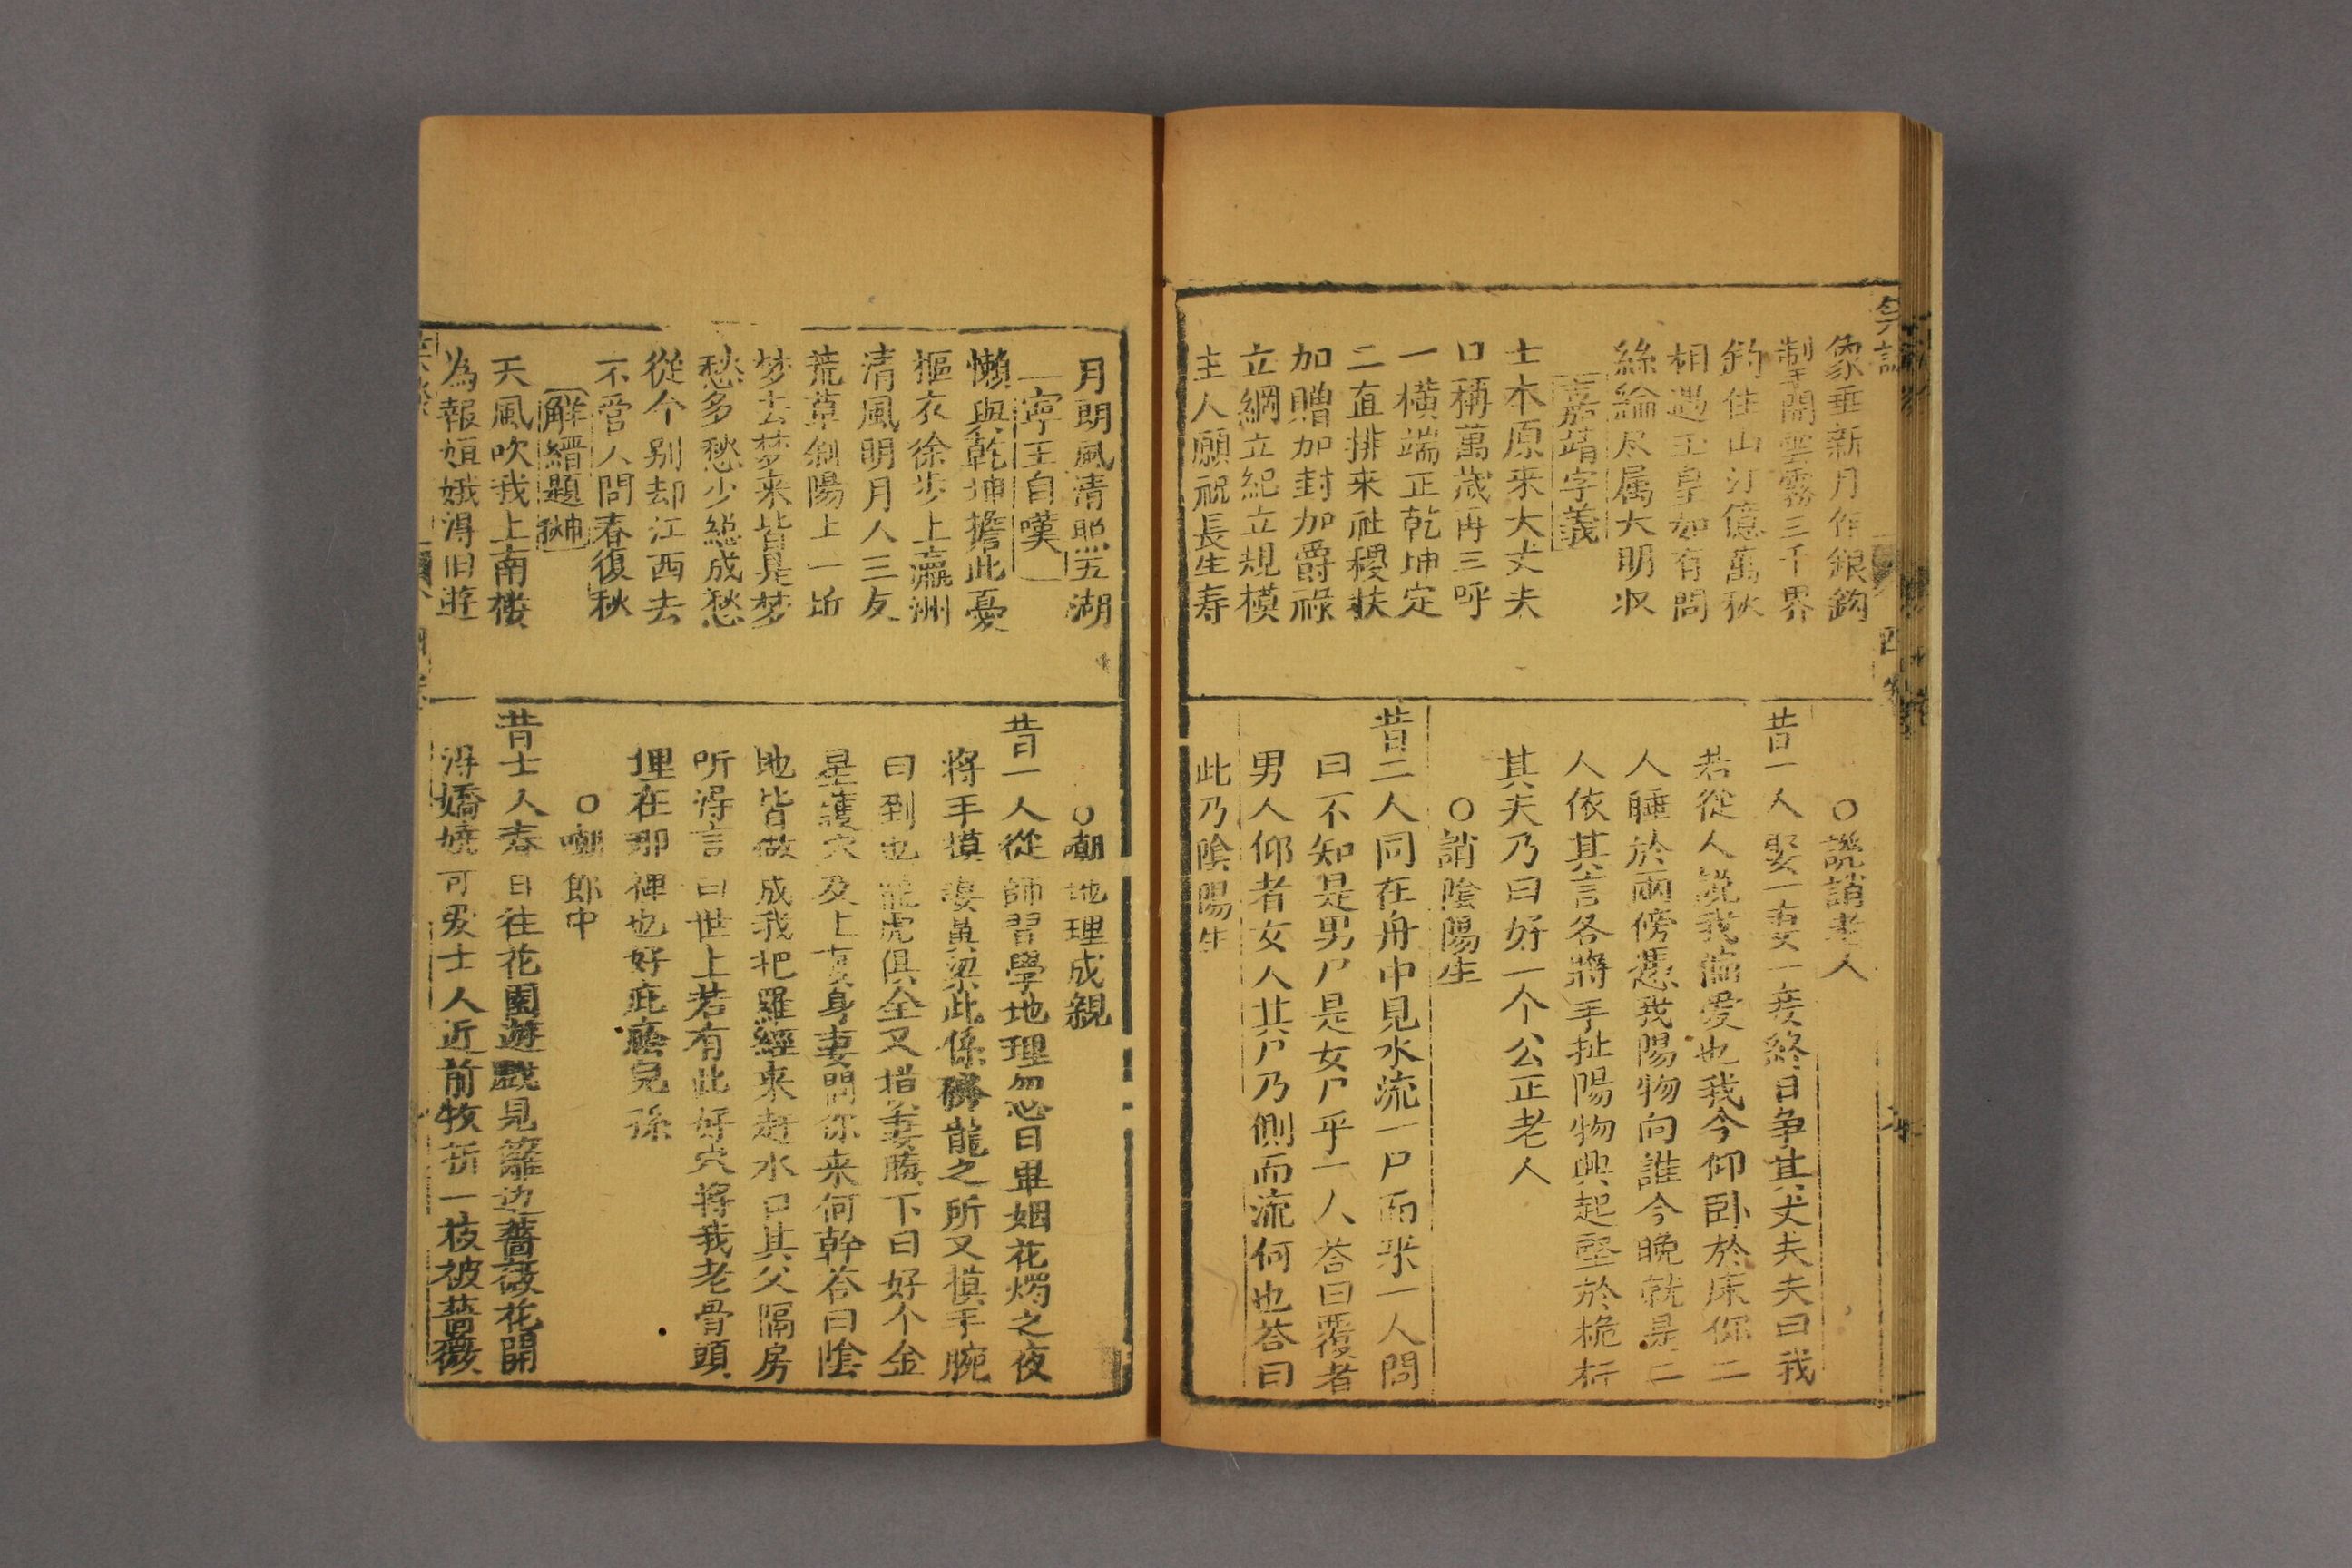 象垂新月作銀鈎
制開雲霧三千界
釣住山河億萬秋
相遇玉皇如有問
絲綸尽属大明收
嘉靖字義
士木原来大丈夫
口稱萬歲再三呼
一横端正乾坤定
二直排来社稷扶
加贈加封加爵祿
立綱立紀立規模
主人願祝長生寿
○譏誚老人
昔一人娶一妻一妾終日争其丈夫夫曰我
若從人説我偏愛也我今仰卧於床你二
人睡於兩傍憑我陽物向誰今晚就是二
人依其言各將手扯陽物興起竪於桅杆
其夫乃曰好一个公正老人
○誚陰陽生
昔二人同在舟中見水流一尸而来一人問
曰不知是男尸是女尸乎一人荅曰覆者
男人仰者女人其尸乃側而流何也荅曰
此乃陰陽生
月朗風清照五湖
寧王自嘆
懶與乾坤擔此憂
摳衣徐步上瀛洲
清風明月人三友
荒草斜陽上一坵
梦去梦来皆是梦
愁多愁少總成愁
從今别却江西去
不管人間春復秋
解縉題
天風吹我上南楼
為報姮娥淂旧遊
○嘲地理成親
昔一人從師習學地理忽日畢姻花燭之夜
將手摸妻鼻梁此係發龍之所又摸手腕
曰到也龍虎俱全又指妻臍下曰好个金
星護穴及上妻身妻問你来何幹荅曰陰
地皆做成我把羅經来赶水口其父隔房
听淂言曰世上若有此好穴将我老骨頭
埋在那裡也好庇廕兒孫
○嘲郎中
昔士人春日往花園遊戲見籬边薔薇花開
淂嬌嬈可爱士人近前攀折一枝被薔薇